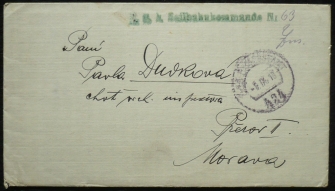 K. u. k. Seilbahnkommando Nr. 63
Paní
Pavla Dudkova
choť vrch. inspektora
Přerov II.
Morava
424